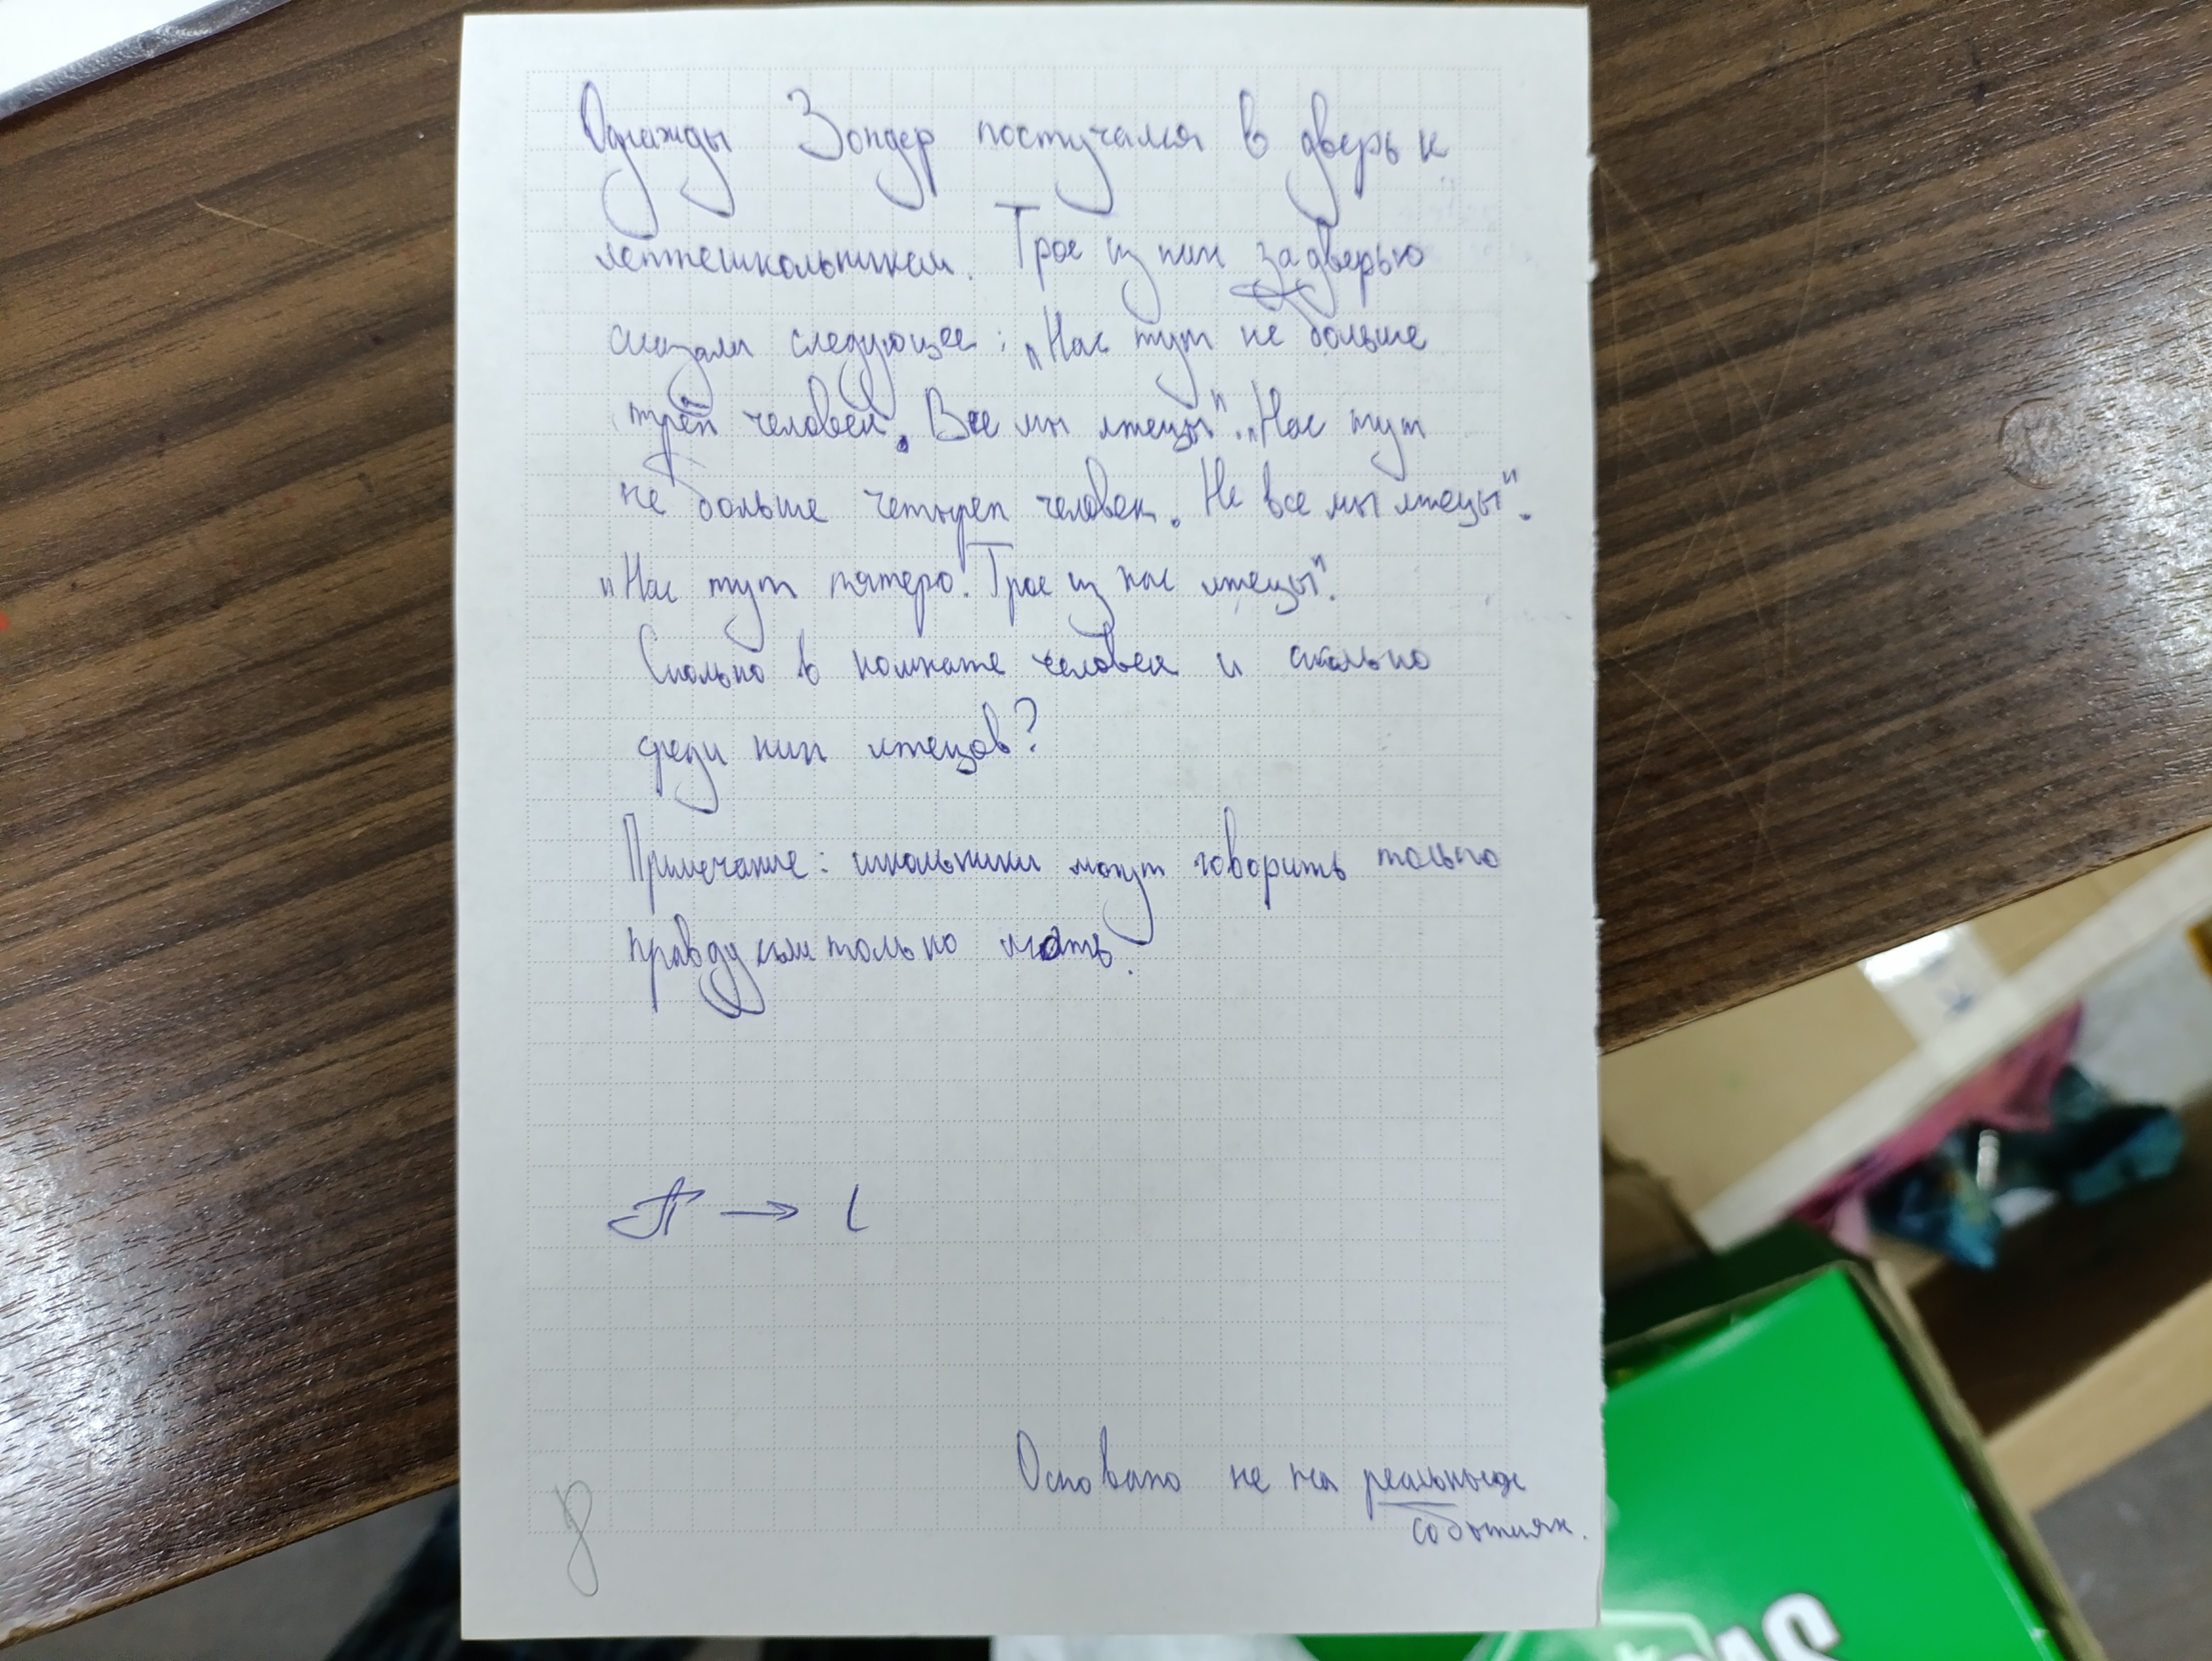 Однажды Зондер постучался в дверь к
летнешкольникам. Трое из них за дверью
сказали следующее: „Нас тут не больше
трёх человек. Все мы лжецы". „Нас тут
не больше четырех человек. Не все мы лжецы".
„Нас тут пятеро. Трое из нас лжецы".
Сколько в комнате человек и сколько
среди них лжецов?
Примечание: школьники могут говорить только
правду или только лгать.
→
Основано не на реальных
событиях.
8
AS